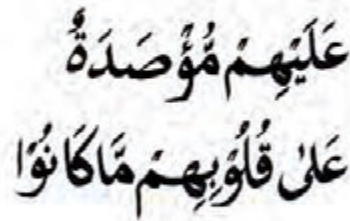 عَلَيْهِمْ مُّؤْصَدَةٌ
عَلٰى قُلُوْبِهِمْ مَّا كَانُوْا